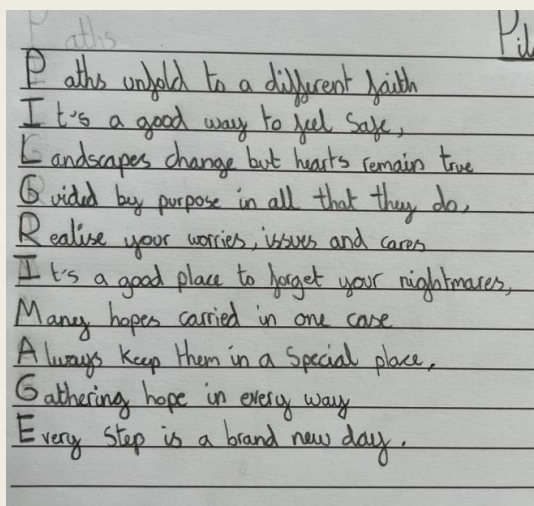 Paths
Pil
Paths unfold to a different faith
It's a good way to feel safe,
Landscapes change but hearts remain true
Guided by purpose in all that they do,
Realise your worries, issues and cares
It's a good place to forget your nightmares,
Many hopes carried in one case
Always keep them in a special place,
Gathering hope in every way
Every step is a brand new day.